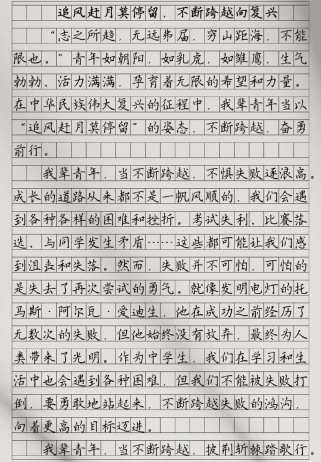 追风赶月莫停留，不断跨越向复兴
“志之所趋，无远弗届，穷山距海，不能
限也。”青年如朝阳，如乳虎，如雏鹰，生气
勃勃，活力满满，孕育着无限的希望和力量。
在中华民族伟大复兴的征程中，我辈青年当以
“追风赶月莫停留”的姿态，不断跨越，奋勇
前行。
我辈青年，当不断跨越，不惧失败逐浪高。
成长的道路从来都不是一帆风顺的，我们会遇
到各种各样的困难和挫折。考试失利、比赛落
选、与同学发生矛盾……这些都可能让我们感
到沮丧和失落。然而，失败并不可怕，可怕的
是失去了再次尝试的勇气。就像发明电灯的托
马斯·阿尔瓦·爱迪生，他在成功之前经历了
无数次的失败，但他始终没有放弃，最终为人
类带来了光明。作为中学生，我们在学习和生
活中也会遇到各种困难，但我们不能被失败打
倒，要勇敢地站起来，不断跨越失败的鸿沟，
向着更高的目标迈进。
我辈青年，当不断跨越，披荆斩棘踏歌行。